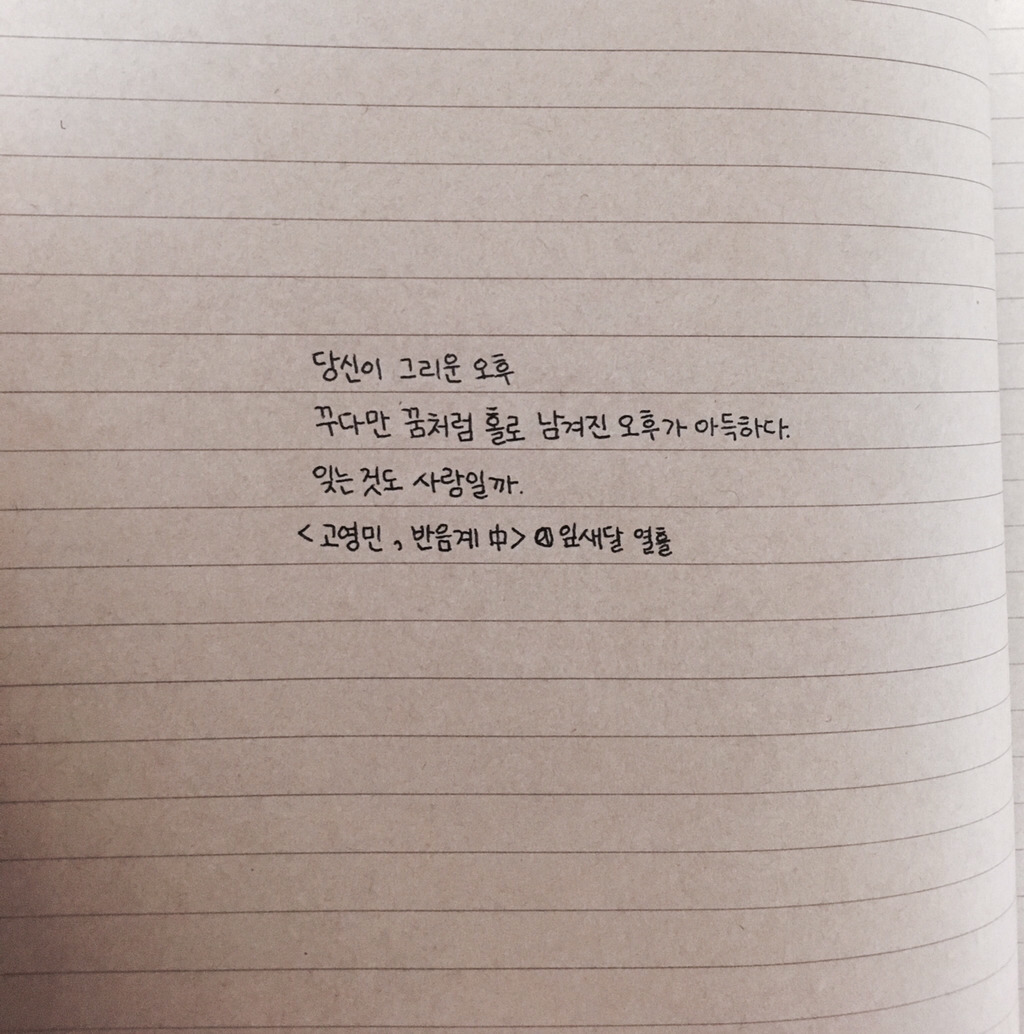 당신이 그리운 오후
꾸다만 꿈처럼 홀로 남겨진 오후가 아득하다.
잊는 것도 사랑일까.
<고영민, 반음계 中> 잎새달 열흘